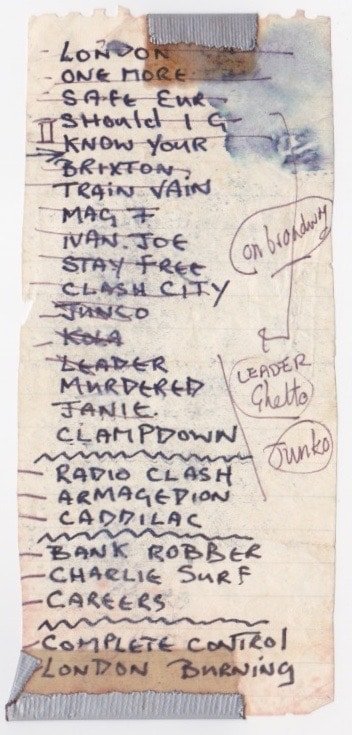 LONDON
ONE MORE
SAFE EUR
II Should I G
KNOW YOUR
BRIXTON.
TRAIN VAIN
MAG 7
IVAN. JOE
STAY FREE
CLASH CITY
JUNCO
KOLA
LEADER
MURDERED
JANIE.
CLAMPDOWN
RADIO CLASH
ARMAGEDION
CADDILAC
BANK ROBBER
CHARLIE SURF
CAREERS
COMPLETE CONTROL
LONDON BURNING
on broadway
LEADER
Ghetto
Junko